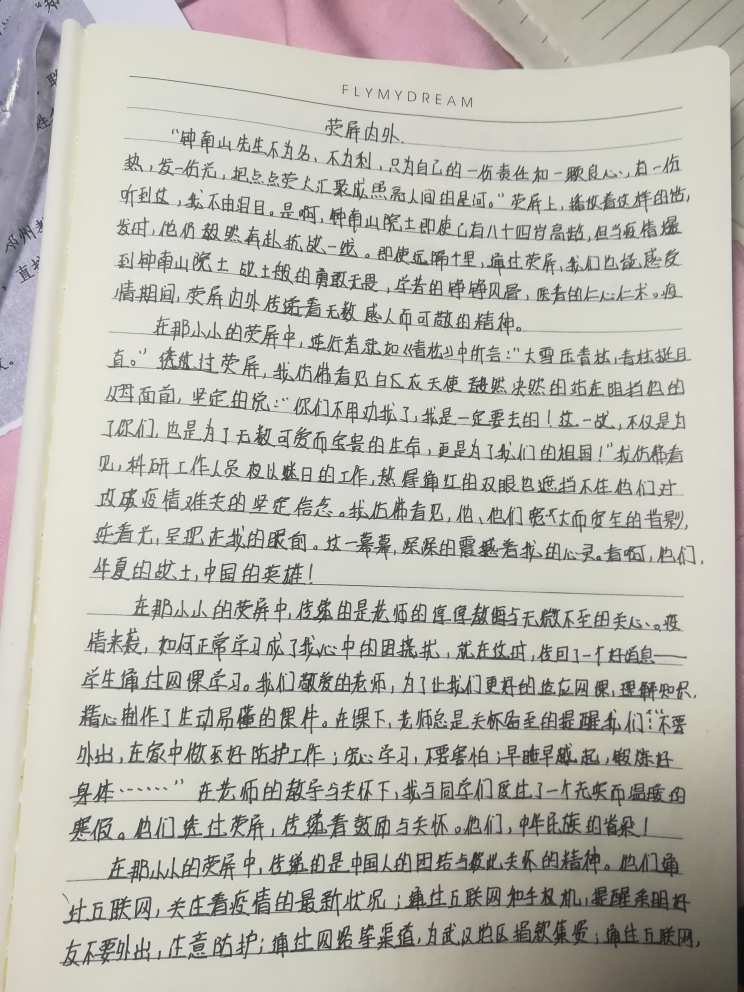 FLYMYDREAM
荧屏内外
“钟南山先生不为名、不为利，只为自己的一份责任和一颗良心，有一份
热，发一份光，把点点荧火汇聚成照亮人间的星河。”荧屏上，播放着这样的话，
听到这，我不由泪目。是啊，钟南山院士即使已有八十四岁高龄，但当疫情爆
发时，他仍毅然奔赴抗战一线。即使远隔千里，通过荧屏，我们也能感受
到钟南山院士战士般的勇敢无畏，学者的铮铮风骨，医者的仁心仁术。疫
情期间，荧屏内外传递着无数感人而可敬的精神。
在那小小的荧屏中，进行着就如《青松》中所言：“大雪压青松，青松挺且
直。”透过荧屏，我仿佛看见白衣天使毅然决然的站在阻挡她的
母面前，坚定的说：“你们不用劝我了，我是一定要去的！这一战，不仅是为
了你们，也是为了无数可爱而宝贵的生命，更是为了我们的祖国！”我仿佛看
见，科研工作人员夜以继日的工作，熬得通红的双眼也遮挡不住他们对
攻破疫情难关的坚定信念。我仿佛看见，他、他们宽大而坚定的背影，
连着光，呈现在我的眼前。这一幕幕，深深的震撼着我的心灵。看啊，他们，
华夏的战士，中国的英雄！
在那小小的荧屏中，传递的是老师的谆谆教诲与无微不至的关心。疫
情来袭，如何正常学习成了我心中的困扰，就在这时，传回了一个好消息——
学生通过网课学习。我们敬爱的老师，为了让我们更好的适应网课，理解知识，
精心制作了生动易懂的课件。在课下，老师总是关怀备至的提醒我们：“不要
外出，在家中做好防护工作；安心学习，不要害怕；早睡早起，锻炼好
身体……”在老师的教导与关怀下，我与同学们度过了一个充实而温暖的
寒假。他们透过荧屏，传递着鼓励与关怀。他们，中华民族的脊梁！
在那小小的荧屏中，传递的是中国人的团结与彼此关怀的精神。他们通
过互联网，关注着疫情的最新状况；通过互联网和手机，提醒亲朋好
友不要外出，注意防护；通过网络等渠道，为武汉地区捐款集资；通过互联网，